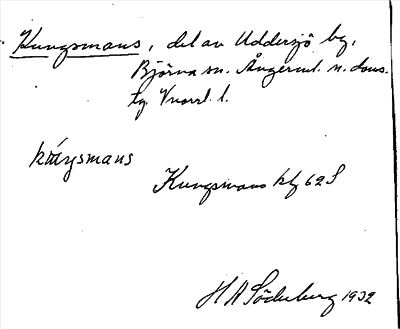 Kungsmans, del av Uddersjö by,
Björna sn. Ångerml. n. doms.
tg. Vnorrl. l.
Kungsmans kbf 62S
H A Söderberg 1932